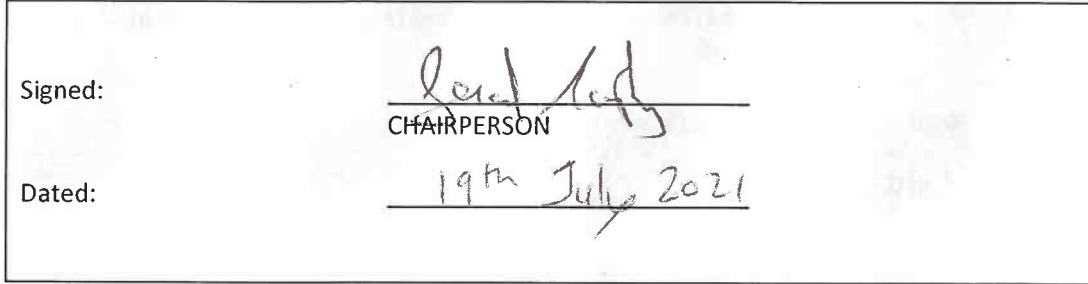 Signed:
CHAIRPERSON
Dated: 19th July 2021